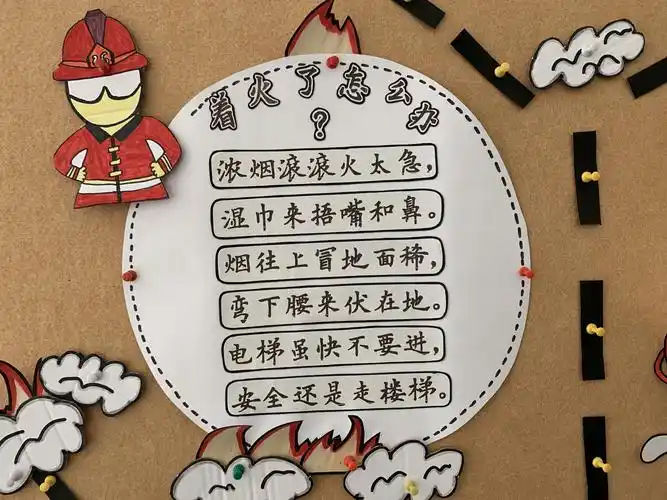 着火了怎么办
?
浓烟滚滚火太急,
湿巾来捂嘴和鼻。
烟往上冒地面稀,
弯下腰来伏在地。
电梯虽快不要进,
安全还是走楼梯。